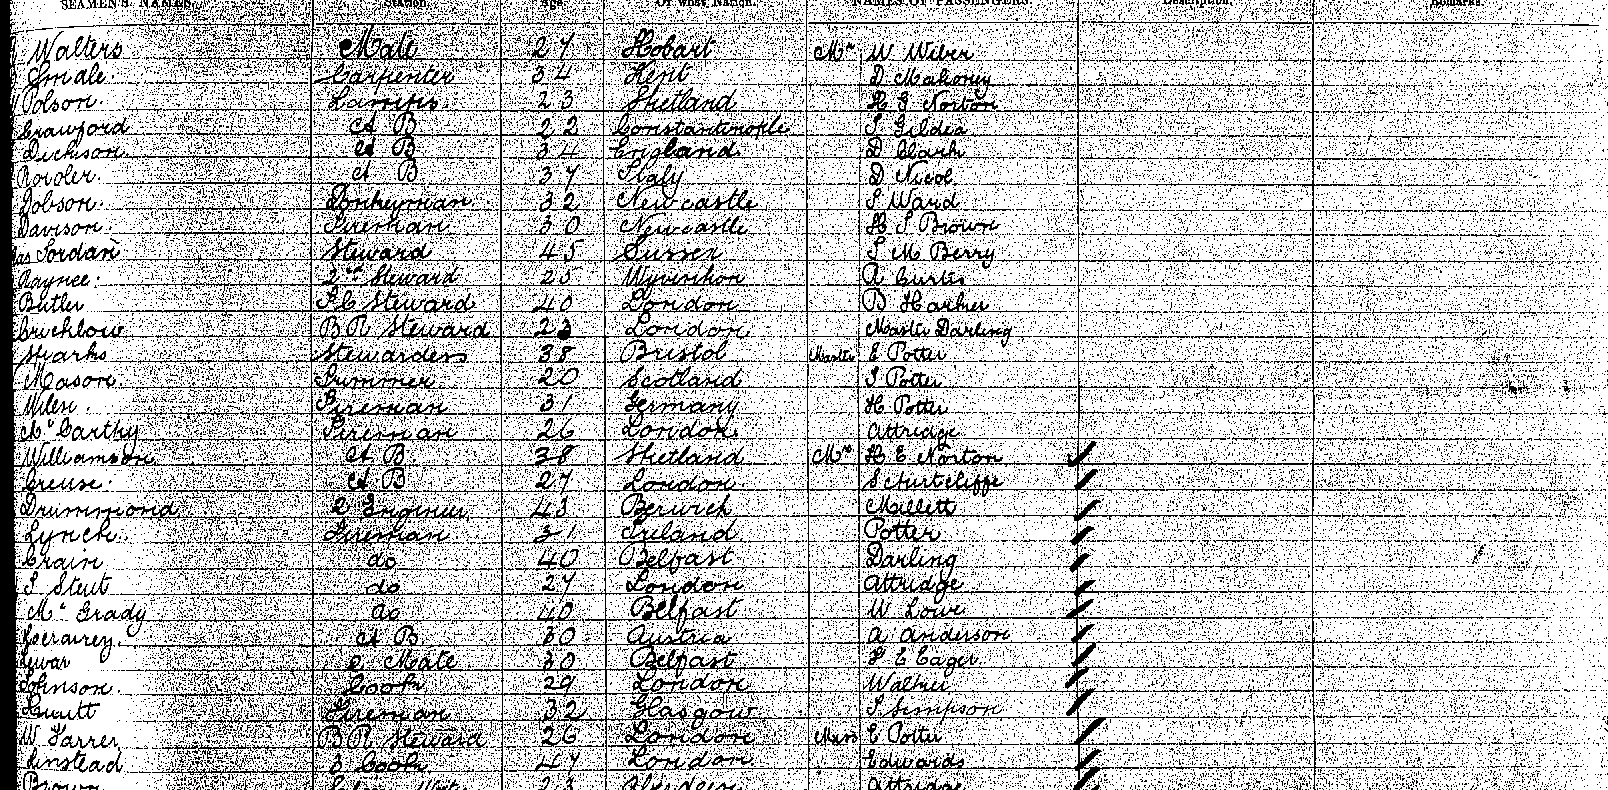 SEAMEN'S NAMES. Station. Age. Of what Nation. NAMES OF PASSENGERS. Description. Remarks.
Walters Mate 27 Hobart Mr W Wilber
Smale Carpenter 34 Kent D Mahoney
Polson Lamps 23 Shetland H G Norton
Crawford A B 22 Constantinople S Gildea
Dickson A B 34 England D Clark
A B 37 Italy D Nicol
Dobson Donkeyman 32 Newcastle S Ward
Davison Fireman 30 Newcastle H S Brown
Jas Jordan Steward 45 Sussex S M Berry
Raynee 2nd Steward 25 A Curtis
Butler F.C Steward 40 London B Harker
Cruchlow B R Steward 23 London Master Darling
Sparks Stewardess 38 Bristol Master E Potter
Mason Trimmer 20 Scotland S Potter
Wilen Fireman 31 Germany H Potter
McCarthy Fireman 26 London Attridge
Williamson A B 38 Shetland Mrs H E Norton
Creuse A B 27 London Schutcliffe
Drummond 2 Engineer 43 Berwick Millett
Lynch Fireman 31 Ireland Potter
Crain do 40 Belfast Darling
S Steut do 27 London Attridge
Mc Grady do 40 Belfast W Lowe
A B 30 Austria A Anderson
Dewar 2 Mate 30 Belfast F E Eager
Johnson Cook 29 London Walker
Fireman 32 Glasgow S Simpson
W Farrer B R Steward 26 London Miss E Potter
Linstead 3 Cook 47 London Edwards
Brown 23 Aberdeen Attridge